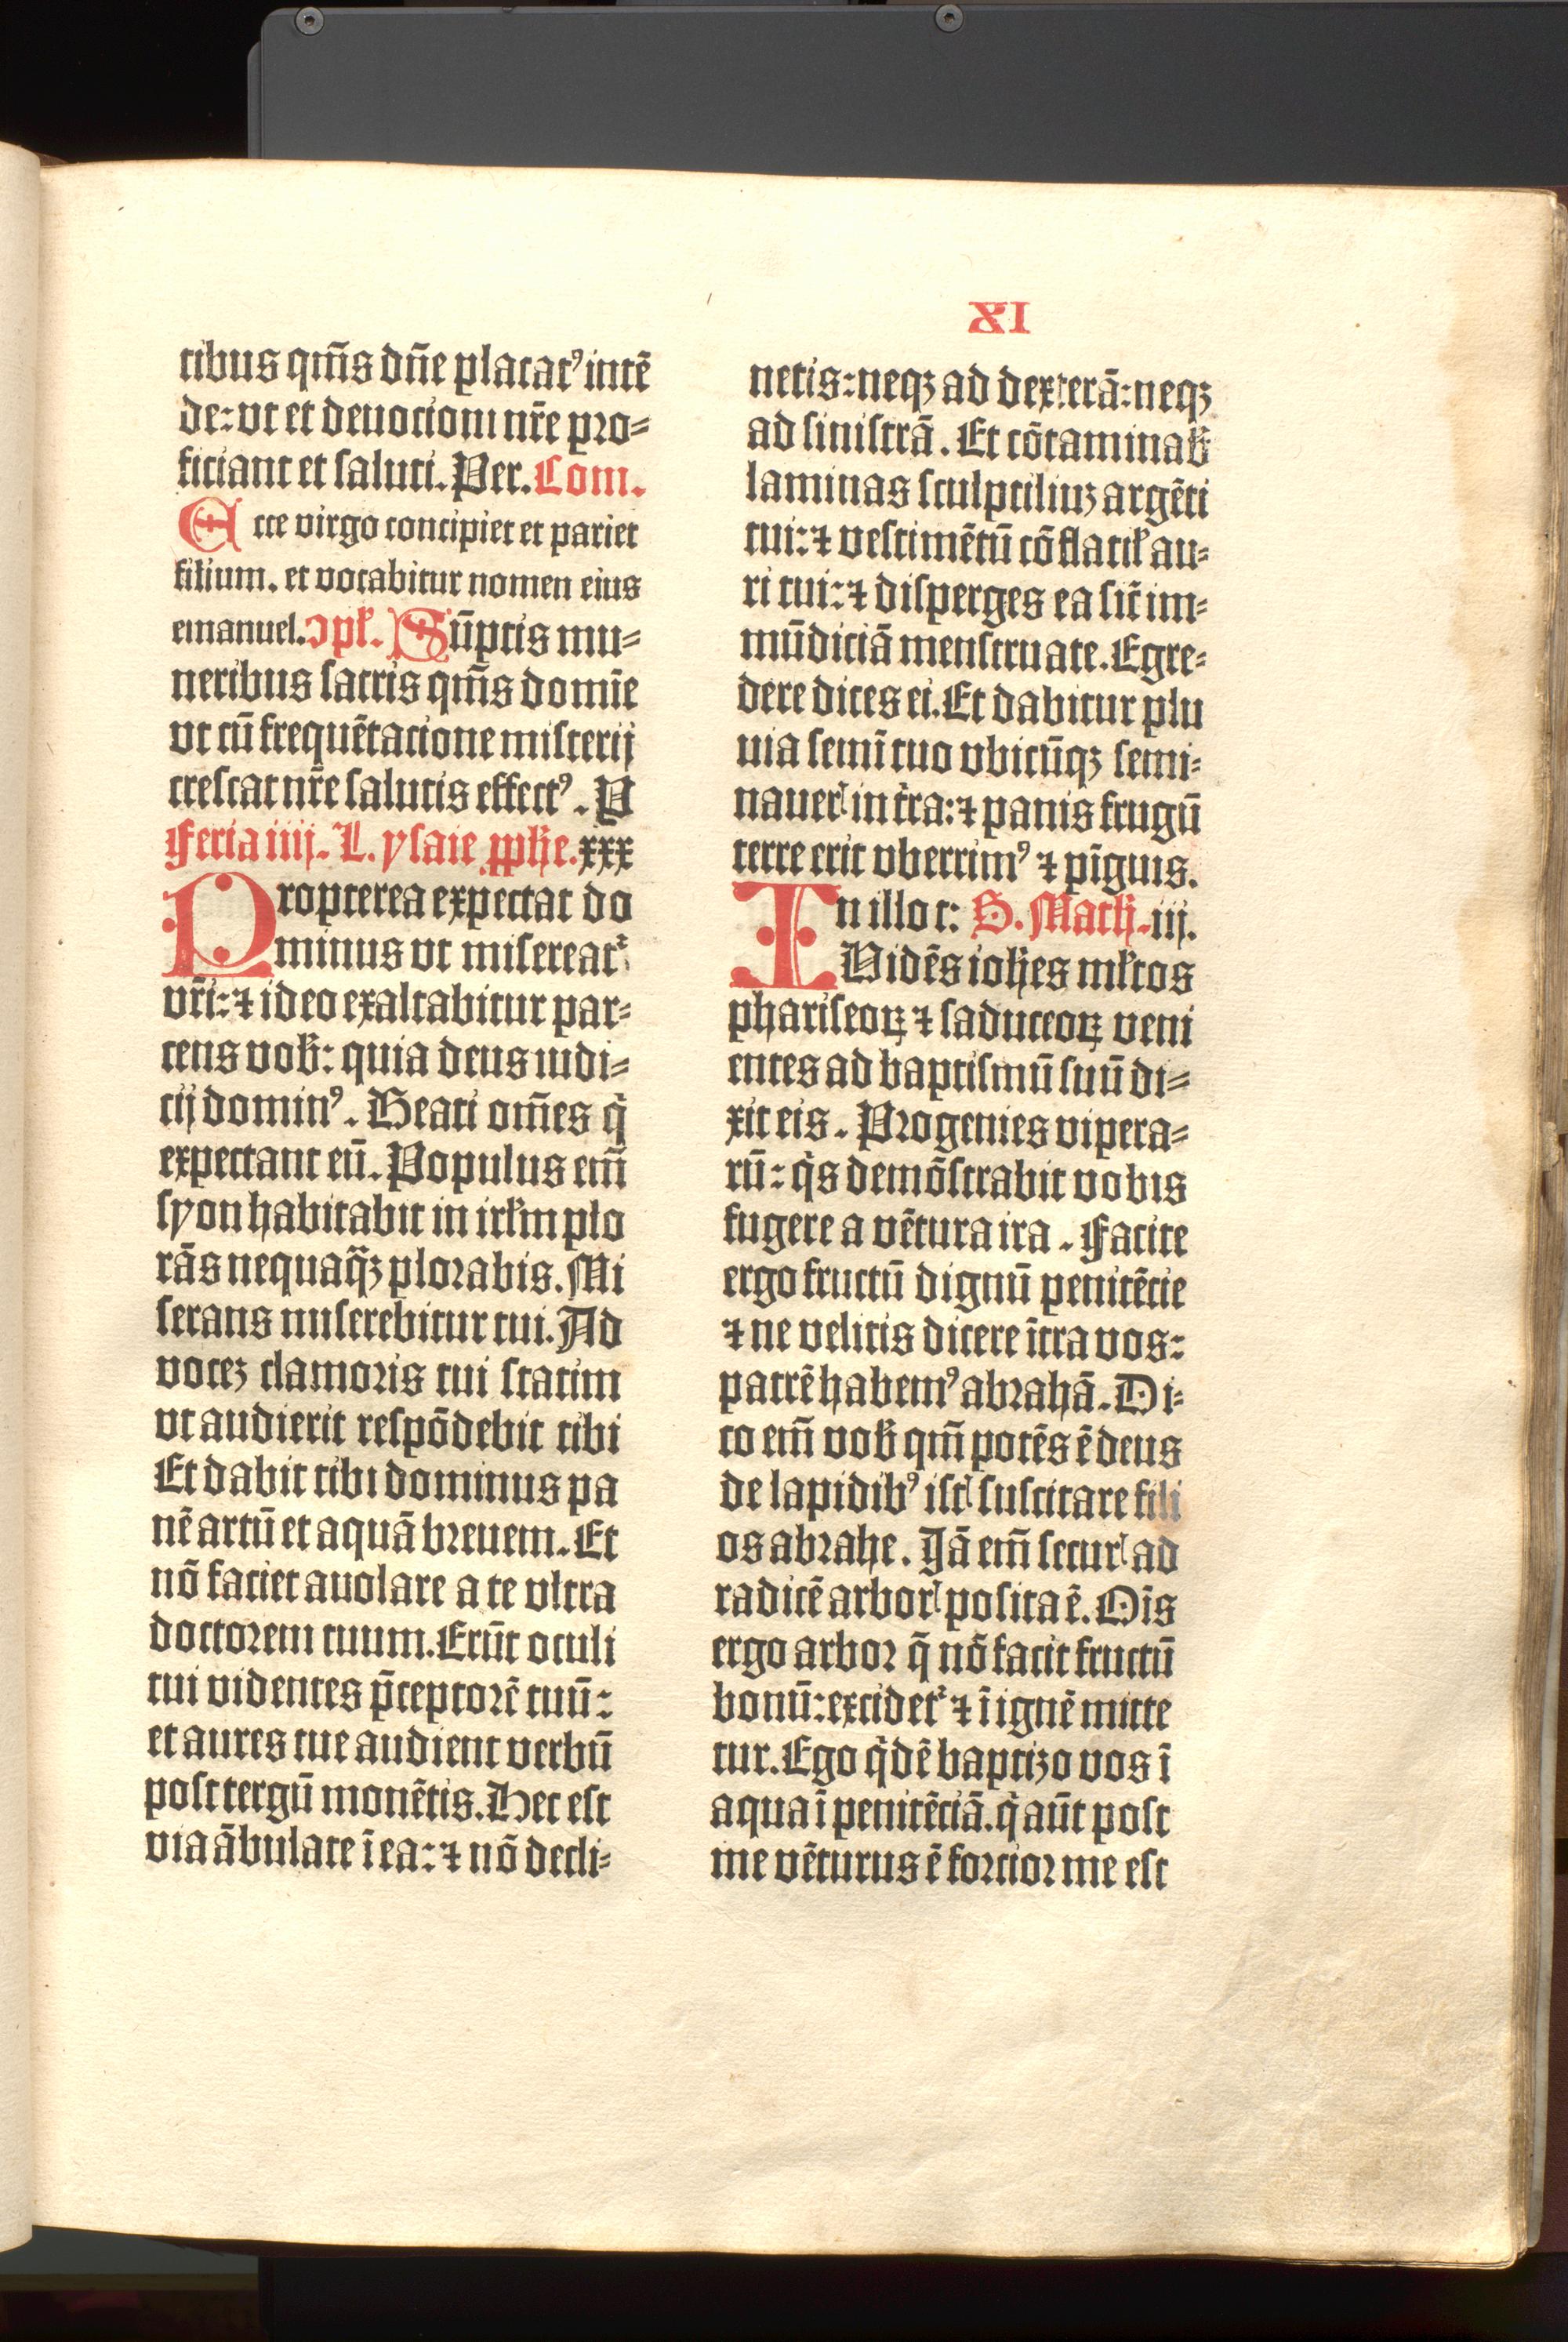 XI
cibus qm̄s dn̄e placatꝰ intē
de: vt et deuocioni nr̄e pro-
ficiant et saluti. Per. Com.
Ecce virgo concipiet et pariet
filium. et vocabitur nomen eius
emanuel. ɔpł. Sūptis mu-
neribus sacris qm̄s domīe
vt cū frequētacione misterij
crescat nr̄e salutis effectꝰ. P
Feria iiij. L. ysaie ꝓph̄e. xxx
Propterea expectat do
minus vt misereat᷑
vr̄i: ⁊ ideo exaltabitur par-
cens vob̄: quia deus iudi-
cij dominꝰ. Beati om̄es q̇
expectant eū. Populus em̄
syon habitabit in irłm plo
rās nequaq̄ꝫ plorabis. Mi
serans miserebitur tui. Ad
voceꝫ clamoris tui statim
vt audierit respōdebit tibi
Et dabit tibi dominus pa
nē artū et aquā breuem. Et
nō faciet auolare a te vltra
doctorem tuum. Erūt oculi
tui videntes p̄ceptorē tuū:
et aures tue audient verbū
post tergū monētis. Hec est
via ābulate ī ea: ⁊ nō decli-
netis: neqꝫ ad dexterā: neqꝫ
ad sinistrā. Et cōtaminab̄
laminas sculptiliuꝫ argēti
tui: ⁊ vestimētū cōflatił au-
ri tui: ⁊ disperges ea sic̄ im-
mūdiciā menstruate. Egre-
dere dices ei. Et dabitur plu
uia semī tuo vbicūqꝫ semi-
nauerꝭ in t̄ra: ⁊ panis frugū
terre erit vberrimꝰ ⁊ pīguis.
In illo t: S. Math̄. iij.
Vidēs ioh̄es młtos
phariseoꝝ ⁊ saduceoꝝ veni
entes ad baptismū suū di-
xit eis. Progenies vipera-
rū: q̇s demōstrabit vobis
fugere a vētura ira. Facite
ergo fructū dignū penitēcie
⁊ ne velitis dicere ītra vos:
patrē habemꝰ abrahā. Di-
co em̄ vob̄ qm̄ potēs ē deus
de lapidibꝰ istꝭ suscitare fili
os abrahe. Jā em̄ securꝭ ad
radicē arborꝭ posita ē. Oīs
ergo arbor q̄ nō facit fructū
bonū: excidet᷑ ⁊ ī ignē mitte
tur. Ego q̇dē baptizo vos ī
aqua ī penitēciā. q̇ aūt post
me vēturus ē fortior me est